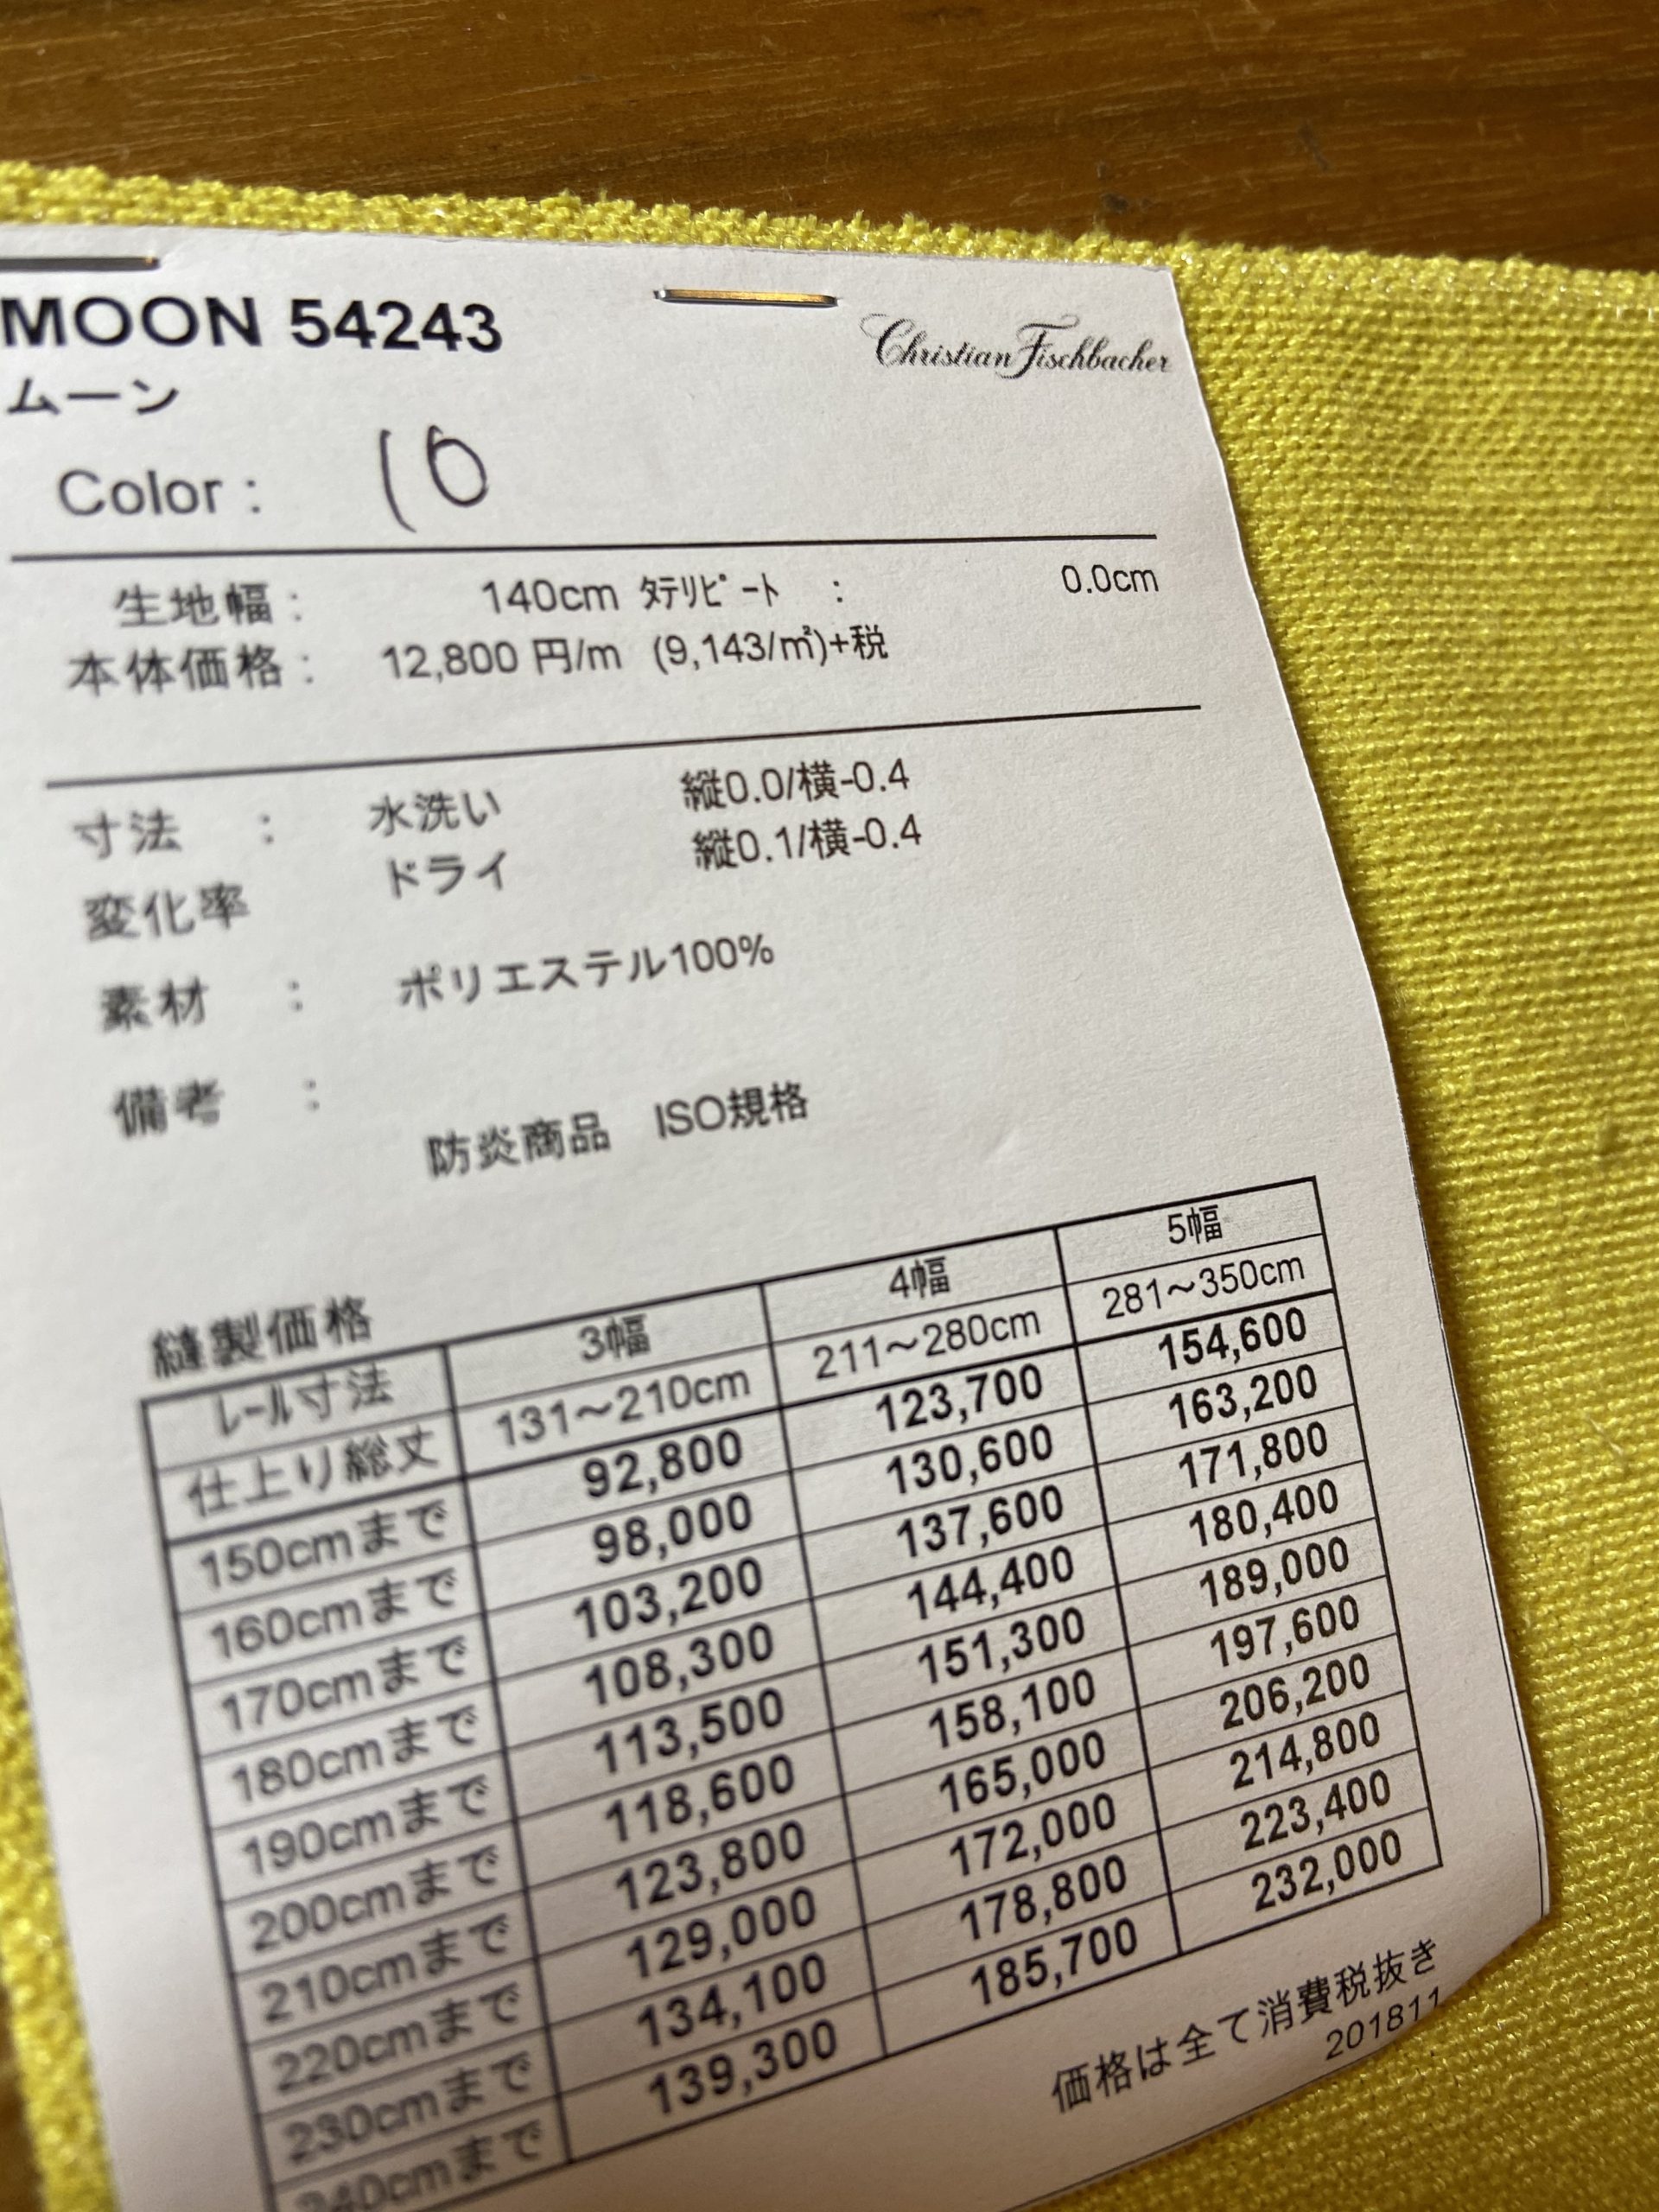 MOON 54243
Christian Fischbacher
ムーン
Color : 10
生地幅 : 140cm ﾀﾃﾘﾋﾟｰﾄ : 0.0cm
本体価格 : 12,800 円/m (9,143/㎡)+税
寸法 : 水洗い 縦0.0/横-0.4
変化率 ドライ 縦0.1/横-0.4
素材 : ポリエステル100%
備考 :
防炎商品 ISO規格
縫製価格
ﾚｰﾙ寸法 3幅 4幅 5幅
仕上り総丈 131～210cm 211～280cm 281～350cm
150cmまで 92,800 123,700 154,600
160cmまで 98,000 130,600 163,200
170cmまで 103,200 137,600 171,800
180cmまで 108,300 144,400 180,400
190cmまで 113,500 151,300 189,000
200cmまで 118,600 158,100 197,600
210cmまで 123,800 165,000 206,200
220cmまで 129,000 172,000 214,800
230cmまで 134,100 178,800 223,400
240cmまで 139,300 185,700 232,000
価格は全て消費税抜き
201811